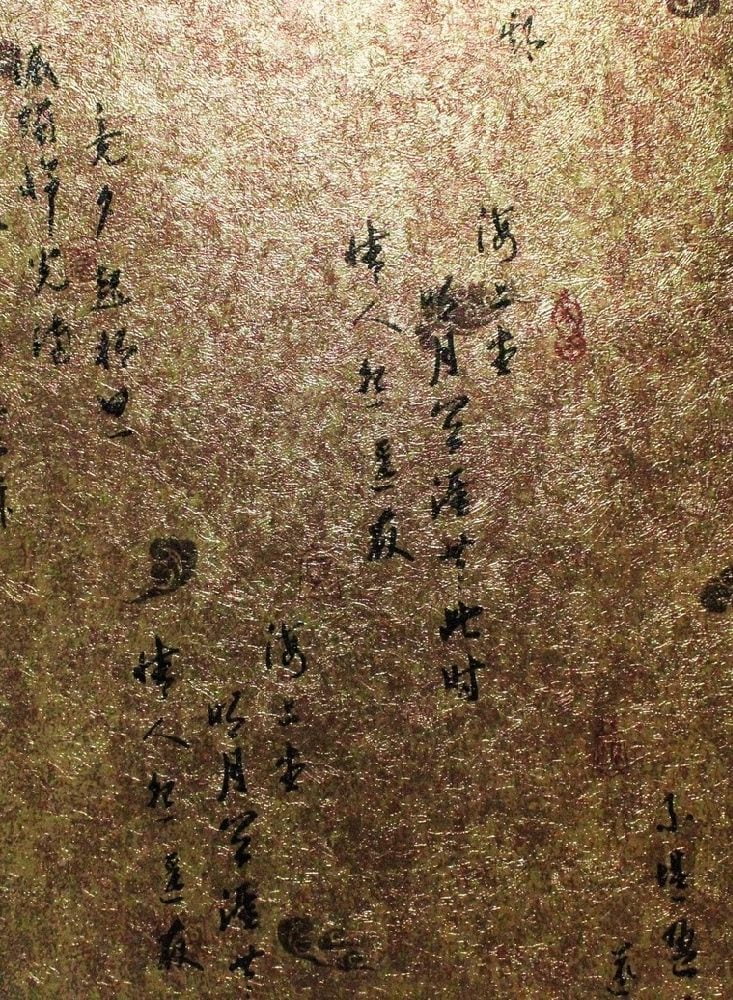 海上生
明月天涯共此时
情人怨遥夜
竟夕起相思
滅燭憐光滿
不堪盈
海上生
明月天涯共
情人怨遥夜